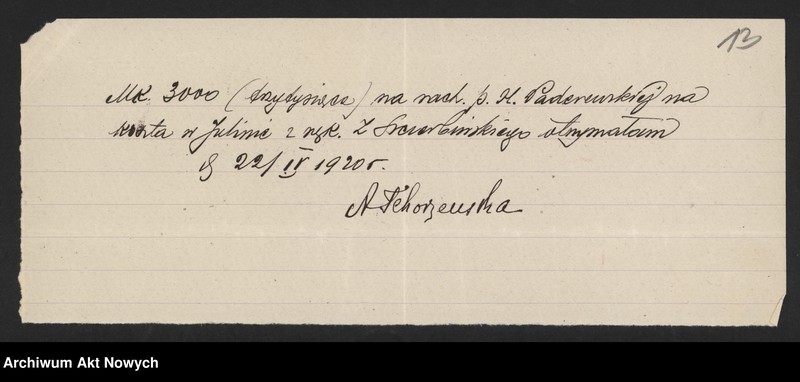 13
Mk. 3000 (trzytysiące) na rach. p. H. Paderewskiej na
koszta w Julinie z rąk. Z Szczerbińskiego otrzymałam
22/IV 1920 r.
A Tchorzewska
Archiwum Akt Nowych